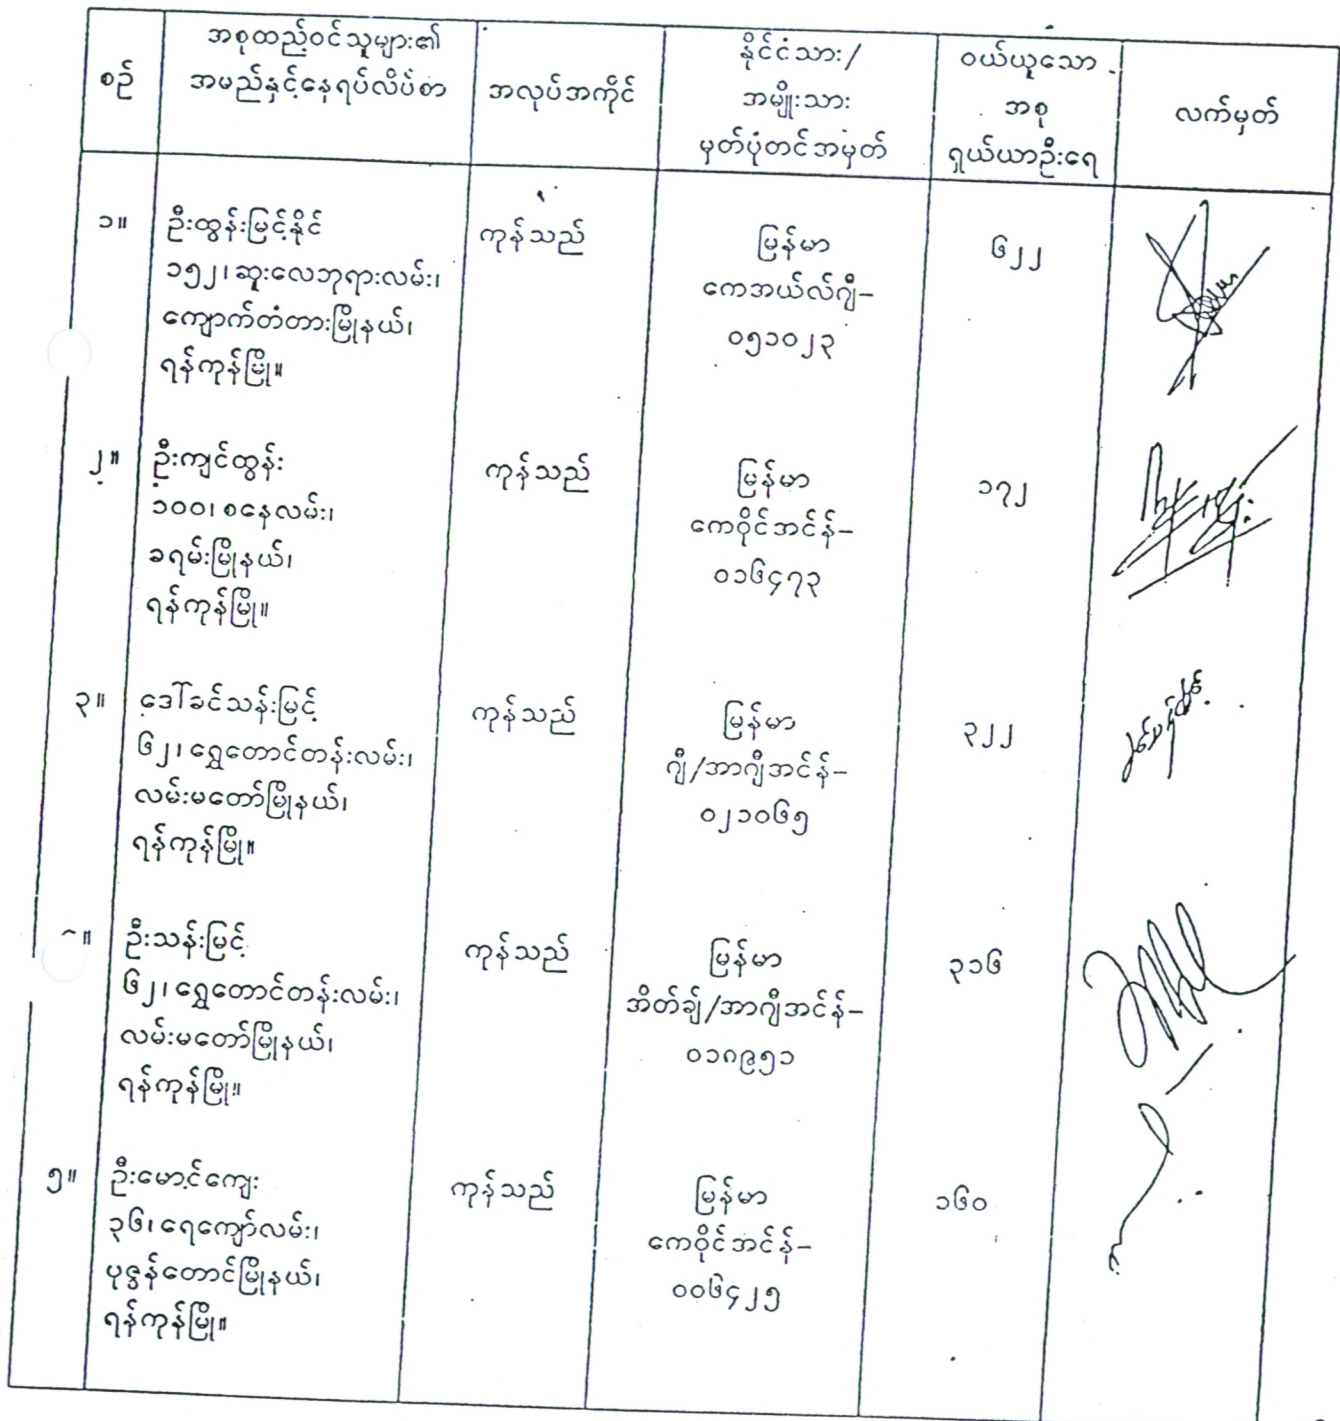 စဉ်
အစုထည့်ဝင်သူများ၏
အမည်နှင့်နေရပ်လိပ်စာ
အလုပ်အကိုင်
နိုင်ငံသား/
အမျိုးသား
မှတ်ပုံတင်အမှတ်
ဝယ်ယူသော
အစု
ရှယ်ယာဦးရေ
လက်မှတ်
၁။
ဦးထွန်းမြင့်နိုင်
၁၅၂၊ ဆူးလေဘုရားလမ်း၊
ကျောက်တံတားမြို့နယ်၊
ရန်ကုန်မြို့။
ကုန်သည်
မြန်မာ
ကေအယ်လ်ဂျီ–
၀၅၁၀၂၃
၆၂၂
၂။
ဦးကျင်ထွန်း
၁၀၀၊ စနေလမ်း၊
ခရမ်းမြို့နယ်၊
ရန်ကုန်မြို့။
ကုန်သည်
မြန်မာ
ကေဝိုင်အင်န်–
၀၁၆၄၇၃
၁၇၂
၃။
ဒေါ်ခင်သန်းမြင့်
၆၂၊ ရွှေတောင်တန်းလမ်း၊
လမ်းမတော်မြို့နယ်၊
ရန်ကုန်မြို့။
ကုန်သည်
မြန်မာ
ဂျီ/အာဂျီအင်န်–
၀၂၁၀၆၅
၃၂၂
။
ဦးသန်းမြင့်
၆၂၊ ရွှေတောင်တန်းလမ်း၊
လမ်းမတော်မြို့နယ်၊
ရန်ကုန်မြို့။
ကုန်သည်
မြန်မာ
အိတ်ချ်/အာဂျီအင်န်–
၀၁၈၉၅၁
၃၁၆
၅။
ဦးမောင်ကျေး
၃၆၊ ရေကျော်လမ်း၊
ပုဇွန်တောင်မြို့နယ်၊
ရန်ကုန်မြို့။
ကုန်သည်
မြန်မာ
ကေဝိုင်အင်န်–
၀၀၆၄၂၅
၁၆၀